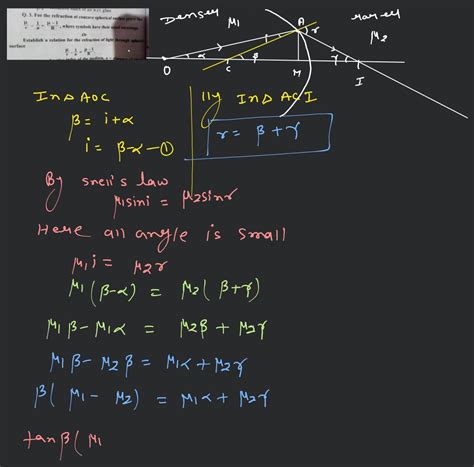 Q. 3. For the refraction at concave spherical
where symbols have their usual meanings.
OR
Establish a relation for the refraction of light through spherical
surface
Denser μ1
A
r
rarer
μ2
α
β
γ
O
C
M
I
In△AOC
β = i+α
i = β-α — ①
lly In△ACI
r = β + γ
By snell's law
μ1sini = μ2sinr
Here all angle is small
μ1 i = μ2r
μ1(β-α) = μ2(β+γ)
μ1β-μ1α = μ2β + μ2γ
μ1β- μ2β = μ1α+μ2γ
β(μ1 - μ2) = μ1α + μ2γ
tanβ(μ1